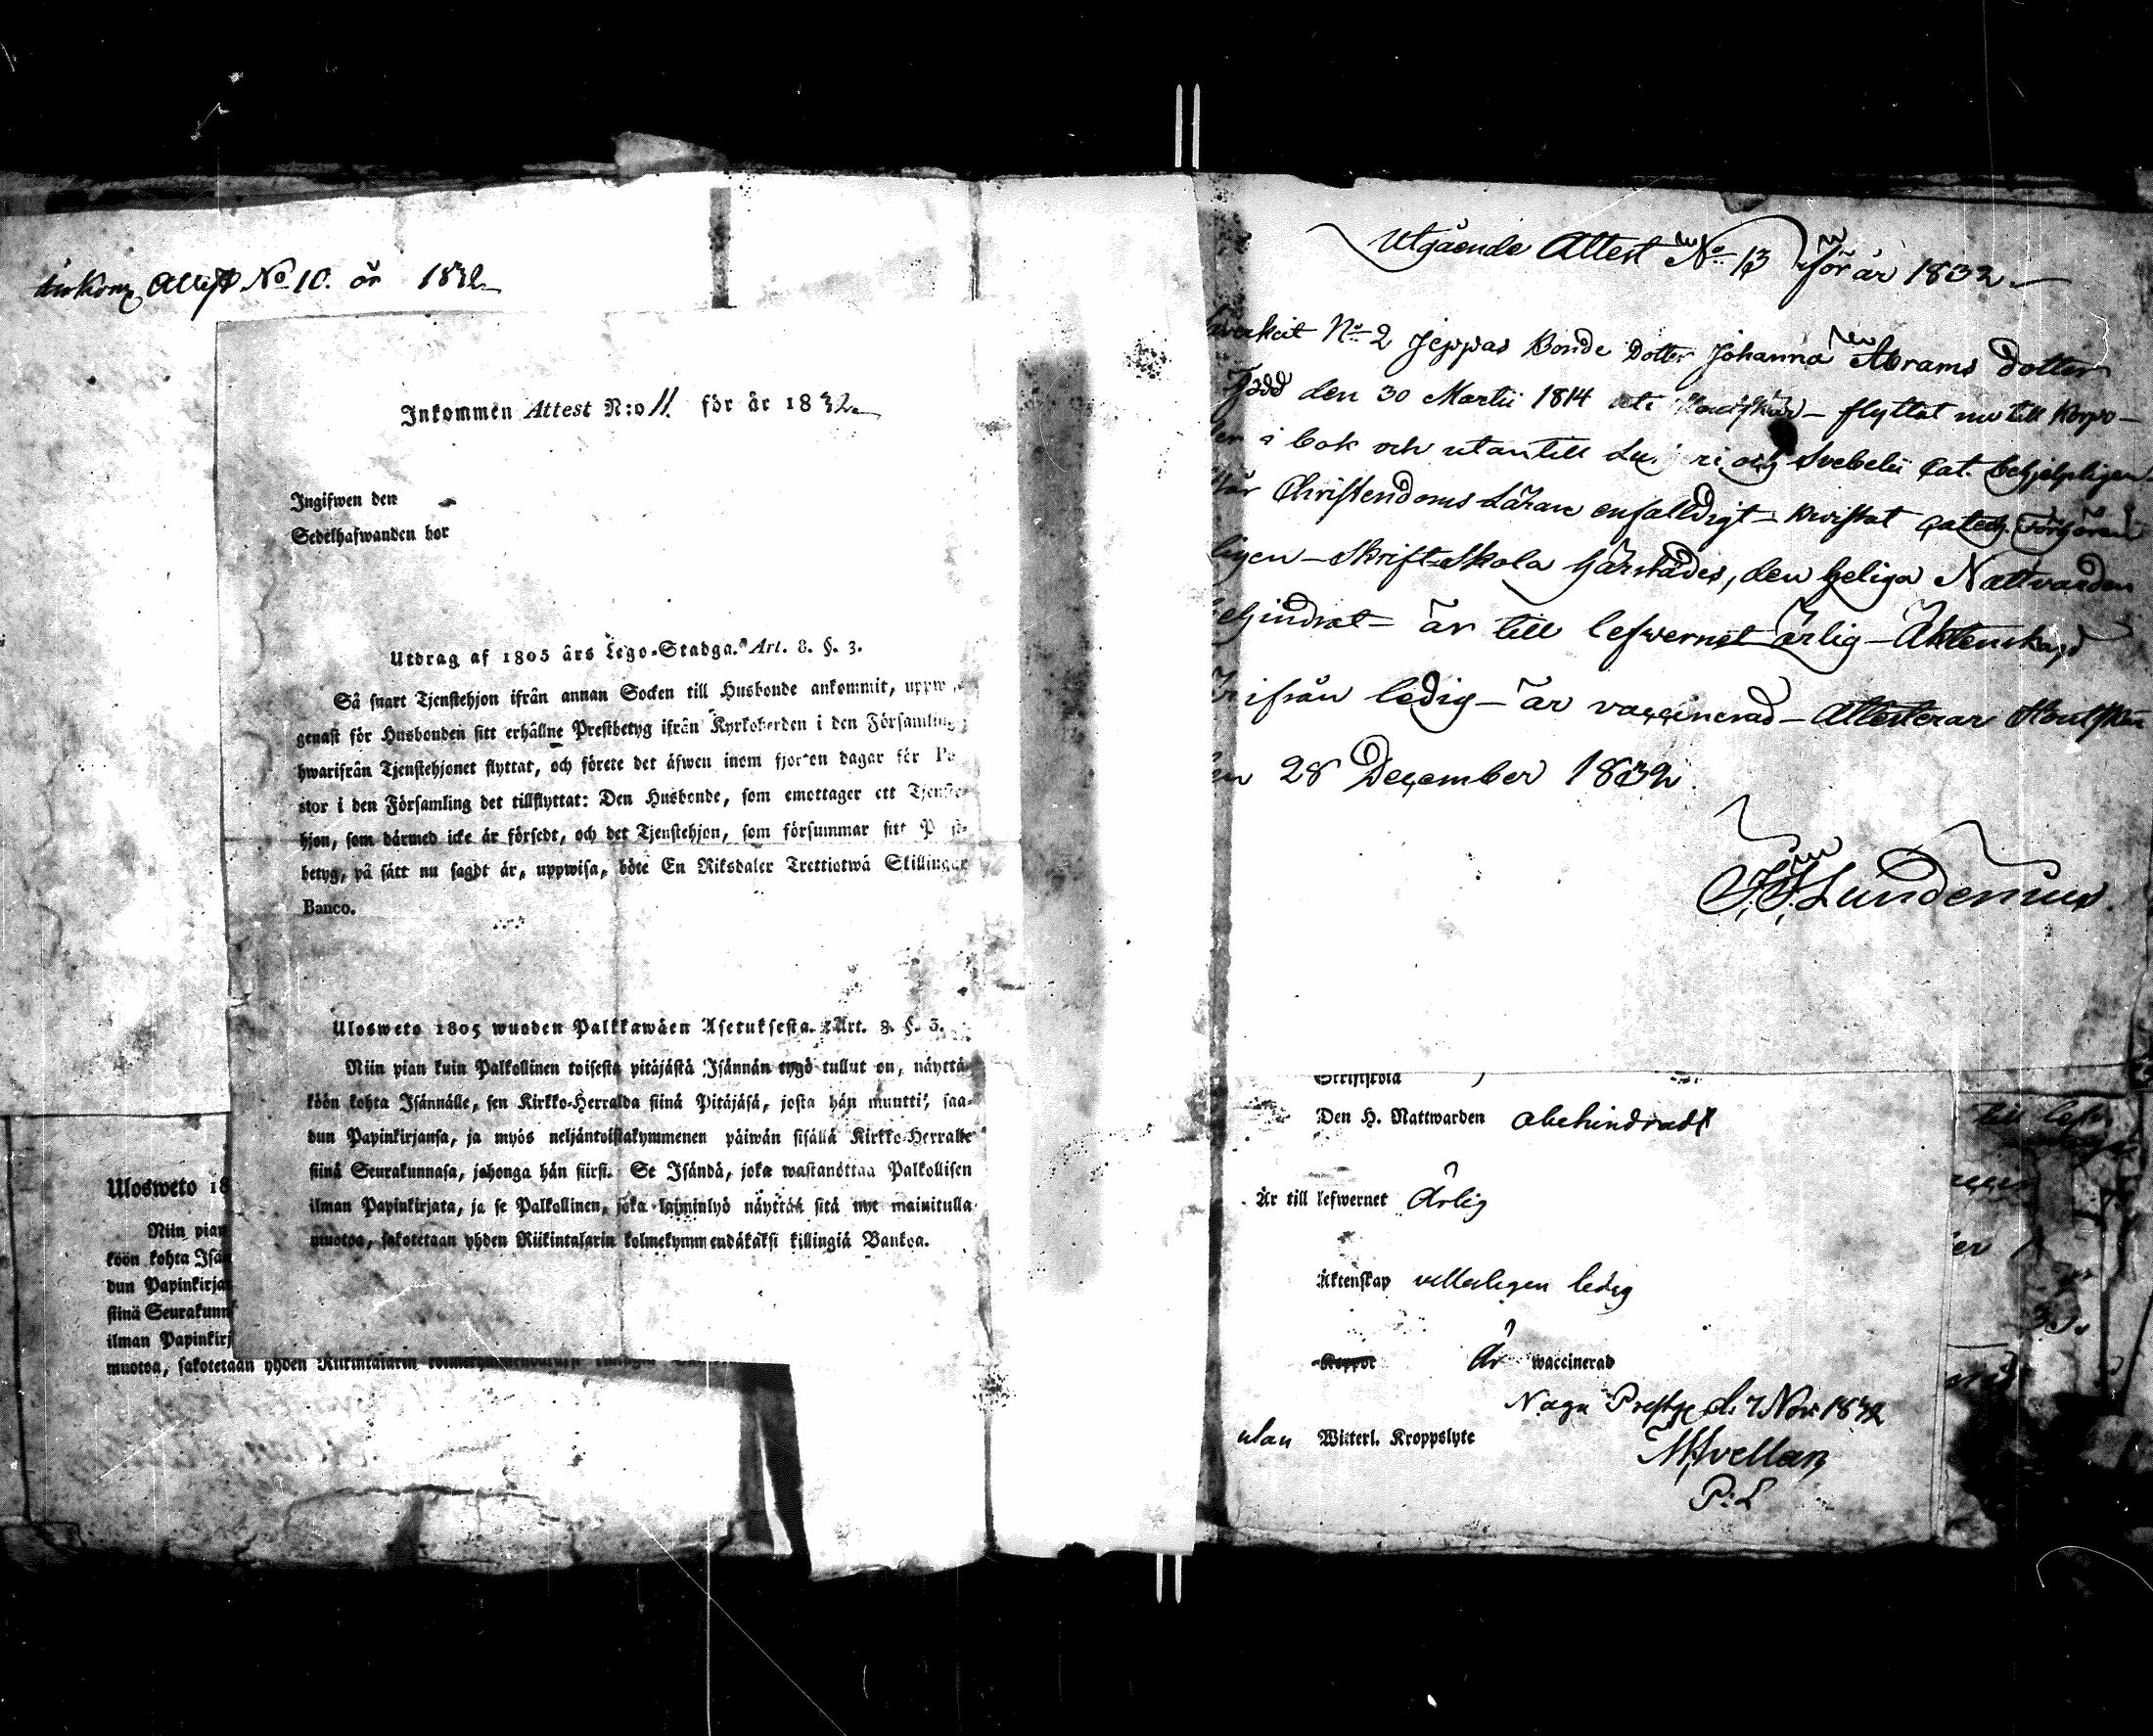 Attest No 10. år 1832
Inkommen Attest N:o 11. för år 1832
Ingifwen den
Sedelhafwanden har
Utdrag af 1805 års Lego-Stadga. Art. 8. §. 3.
Så snart Tjenstehjon ifrån annan Socken till Husbonde ankommit, uppw
genast för Husbonden sitt erhållne Prestbetyg ifrån Kyrkoherden i den Församling
hwarifrån Tjenstehjonet flyttat, och förete det äfwen inom fjorton dagar för Pa
stor i den Församling det tillflyttat: Den Husbonde, som emottager ett Tjenste
hjon, som därmed icke är försedt, och det Tjenstehjon, som försummar sitt
betyg, på sätt nu sagdt är, uppwisa, böte En Riksdaler Trettiotwå Skillingar
Banco.
Ulosweto 1805 wuoden Palkkawäen Asetuksesta. Art. 8. §. 3.
Niin pian kuin Palkollinen toisesta pitäjästä Isännän tygö tullut on, näyttä-
köön kohta Isännälle, sen Kirkko-Herralda siinä Pitäjäsä, josta hän muutti, saa-
dun Papinkirjansa, ja myös neljäntoistakymmenen päiwän sisällä Kirkko-Herralle
siinä Seurakunnasa, johonga hän siirsi. Se Isändä, joka wastanottaa Palkollisen
ilman Papinkirjata, ja se Palkollinen, joka laiminlyö näyttää sitä nyt mainitulla
muotoa, sakotetaan yhden Riikintalarin kolmekymmendäkaksi killingiä Bankoa.
Ulosweto 18
Niin pian
köön kohta Isän
dun Papinkirja
siinä Seurakunn
ilman Papinkirj
muotoa, sakotetaan yhden Riikintalarin
Utgående Attest No 13 för år 1832
No 2 Jeppas Bonde Dotter Johanna Abrams Dotter
född den 30 Martii 1814 uti Houtskär – flyttat nu till Korpo –
i bok och utantill och Svebelii Cat. behjelpligen
Christendoms Läran enfalldigt – bevistat Catech. Förhören
ligen – Skrift-Skola härstädes, den heliga Nattvarden
ehindrat – är till lefwernet ärlig – Äktenskap
ifrån ledig – är vaccinerad – Attesterar Houtskär
28 December 1832
Lundenius.
Skriftskola
Den H. Nattwarden obehindradt
Är till lefwernet Ärlig
Äktenskap vitterligen ledig
Koppor Är waccinerad
Nagu Prestg. d. 7 Nov. 1832
utan Witterl. Kroppslyte
P:L